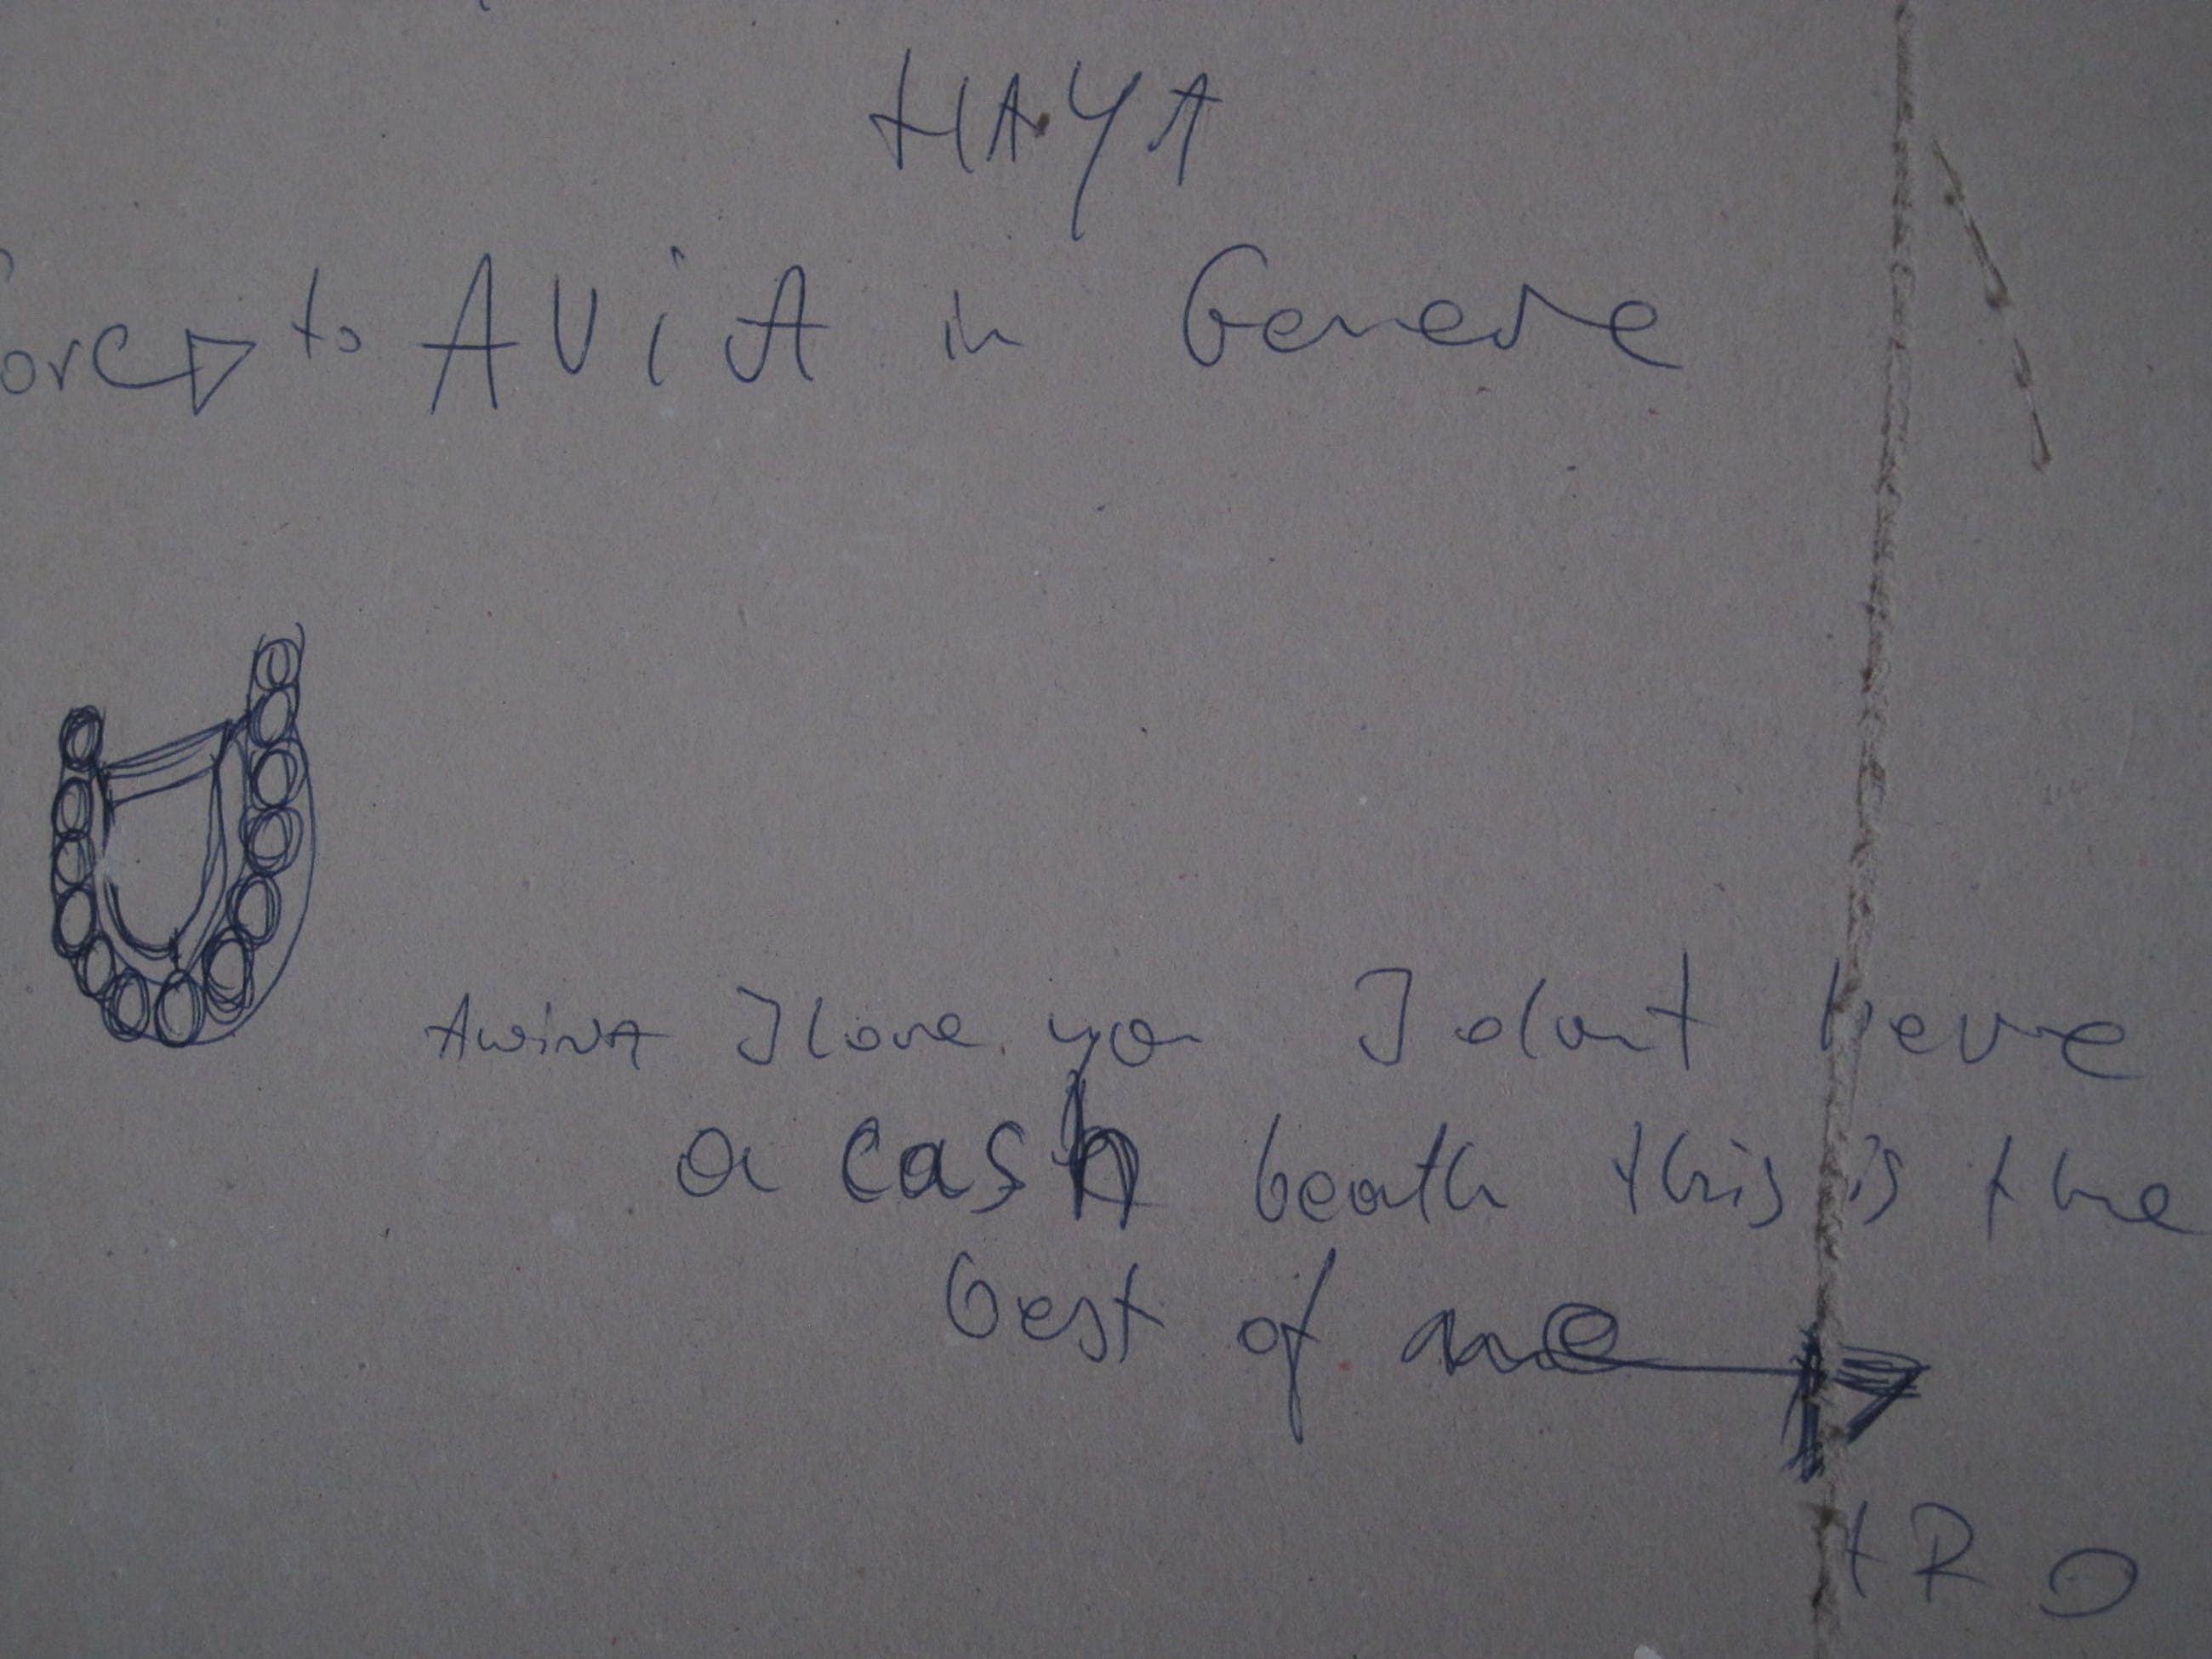 HAYA
to AViA in Geneve
I love you I dont heve
a cash beath this is the
best of me
tRO